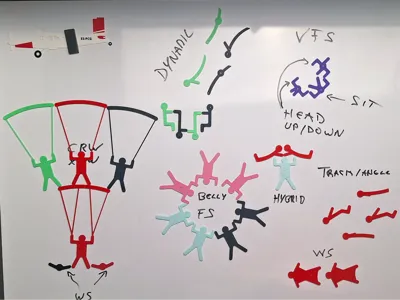 DYNAMIC
VFS
SIT
HEAD
UP/DOWN
CRW
BELLY
FS
HYBRID
TRACK/ANGLE
WS
WS